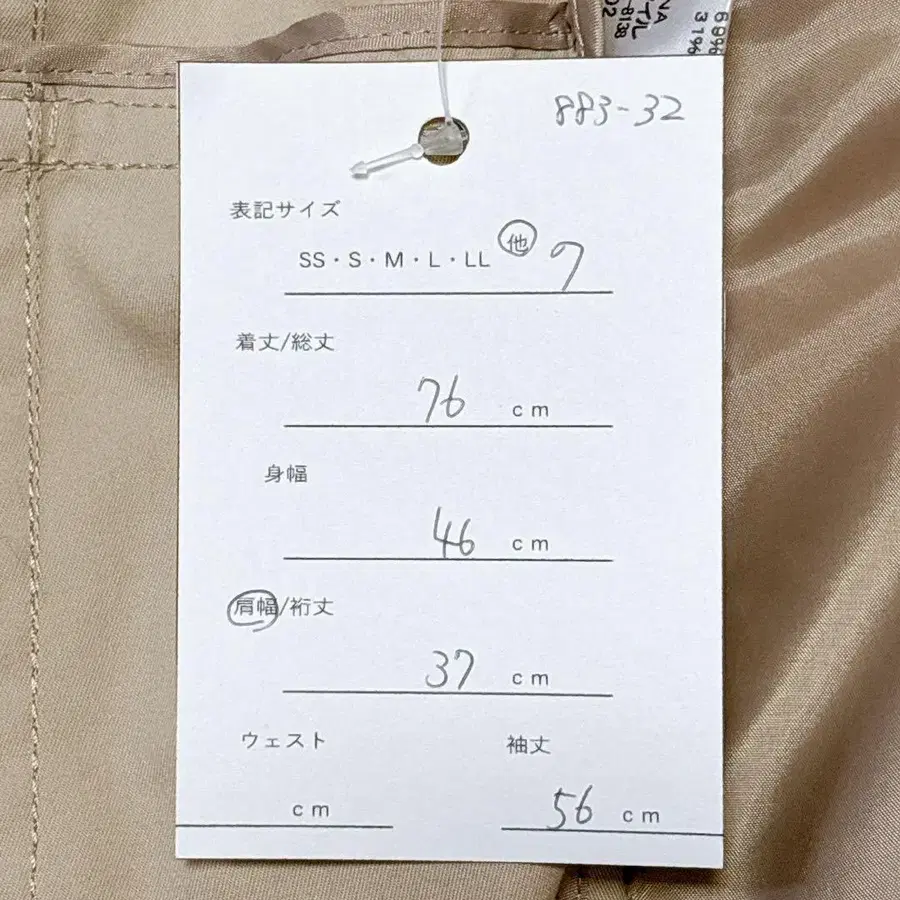 883-32
表記サイズ
SS・S・M・L・LL 他 7
着丈/総丈
76 cm
身幅
46 cm
肩幅/裄丈
37 cm
ウェスト 袖丈
cm 56 cm
69%
31%